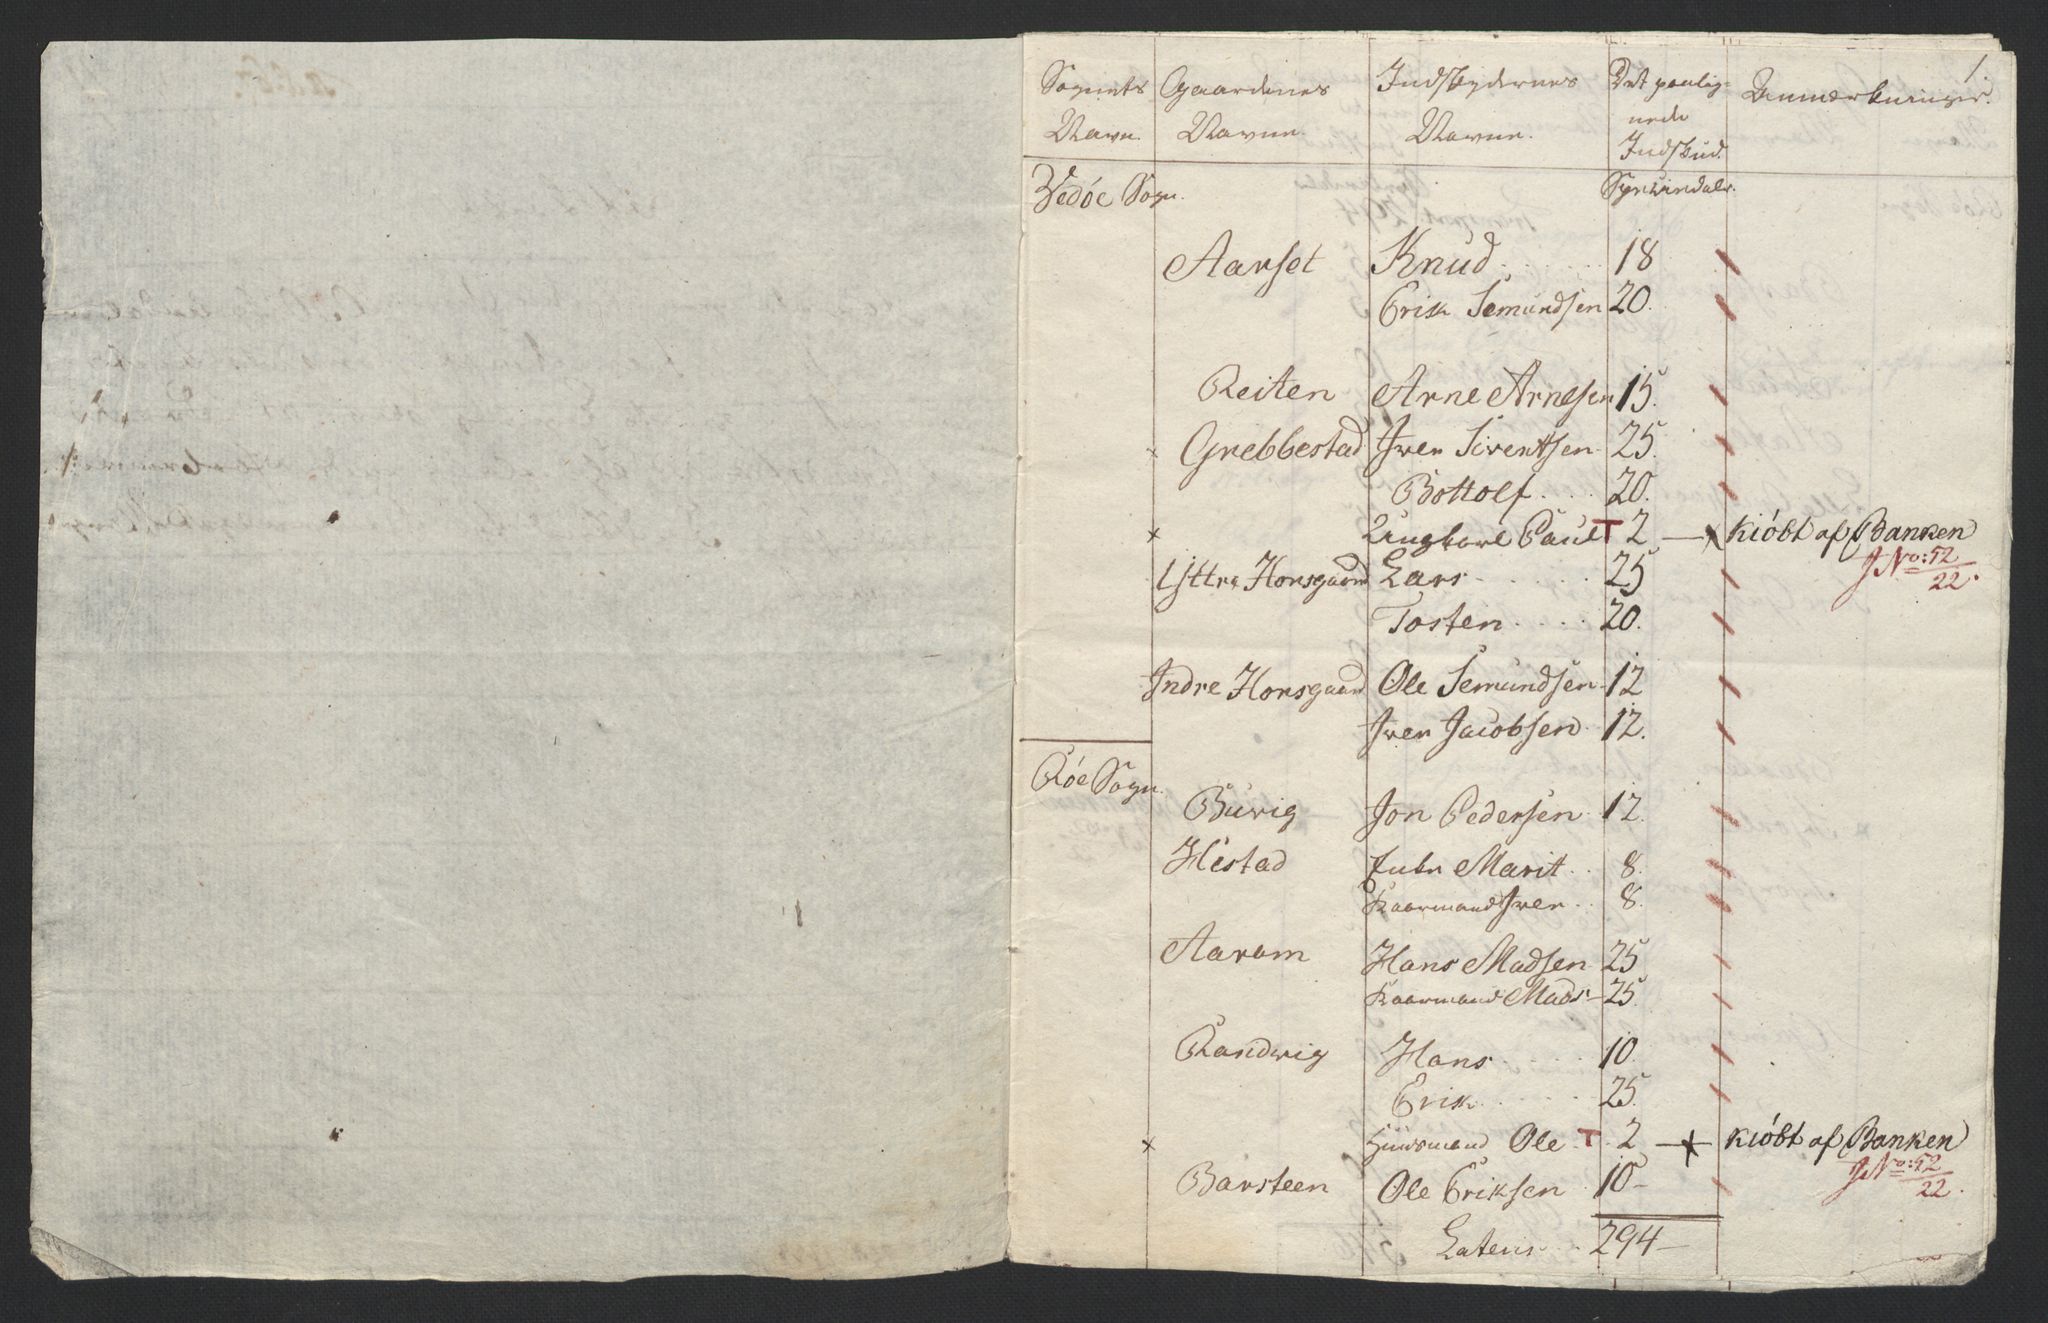 1.
Sognets Navn. Gaardenes Navne. Indskydernes Navne. Det paalignede Indskud. Anmærkninger.
Vedöe Sogn. Spesiedaler.
Aarset Knud 18
Erik Semundsen 20.
Reiten Arne Arnesen 15.
× Grebbestad Iver Siventsen 25.
Bottolf 20.
× Ungkarl Paul T 2 — × Kiöbt af Banken
J No: 52/22.
Yttre Horsgaard Lars 25
Tosten 20.
Indre Horsgaard Ole Semundsen 12
Iver Jacobsen 12.
Röe Sogn.
Burig Jon Pedersen 12.
Hestad Enke Marit 8.
Kaarmand Iver 8.
Aaram Hans Madsen 25
Kaarmand Mads 25.
Randvig Hans 10
Erik 25.
× Huusmand Ole T 2 — × Kiöbt af Banken
J No: 52/22.
Barsteen Ole Eriksen 10 –
Latens 294 –